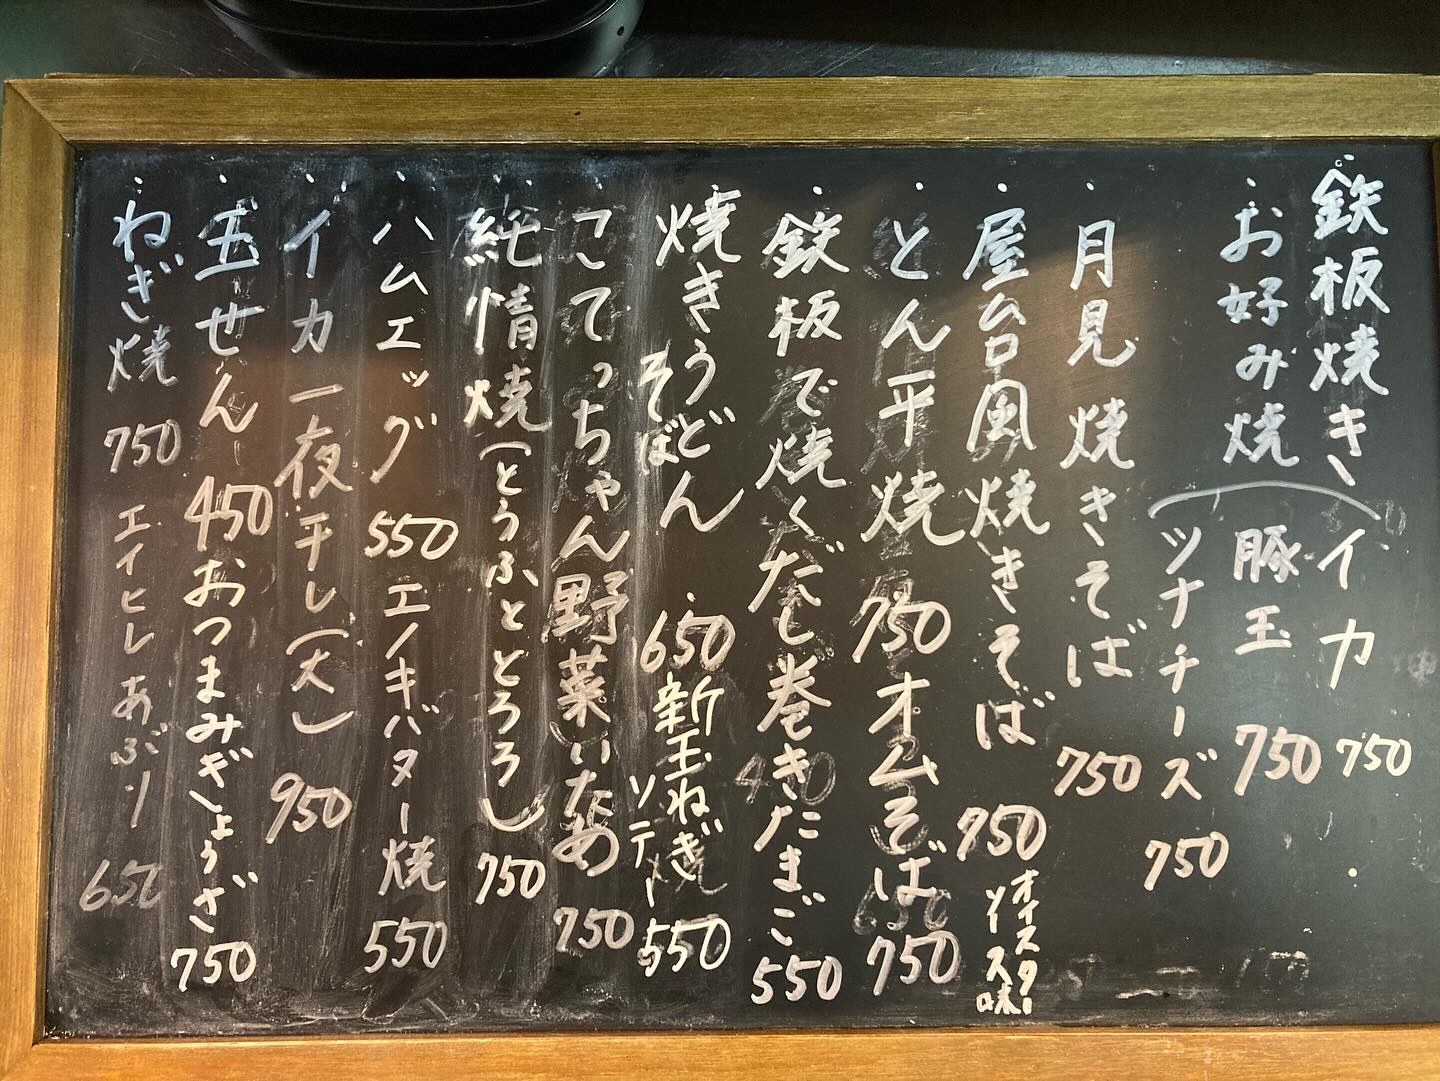 鉄板焼き、イカ 750
・お好み焼 豚玉 750
ツナチーズ 750
・月見焼きそば 750
・屋台風焼きそば 750 オイスターソース味
・とん平焼 750 オムそば 750
・鉄板で焼くだし巻きたまご 550
・焼きうどん そば 650
・新玉ねぎソテー 550
・こてっちゃん野菜いため 750
・純情焼(とうふととろろ) 750
・ハムエッグ 550 エノキバター焼 550
・イカ一夜干し(大) 950
・玉せん 450 おつまみぎょうざ 750
・ねぎ焼 750 エイヒレあぶり 650